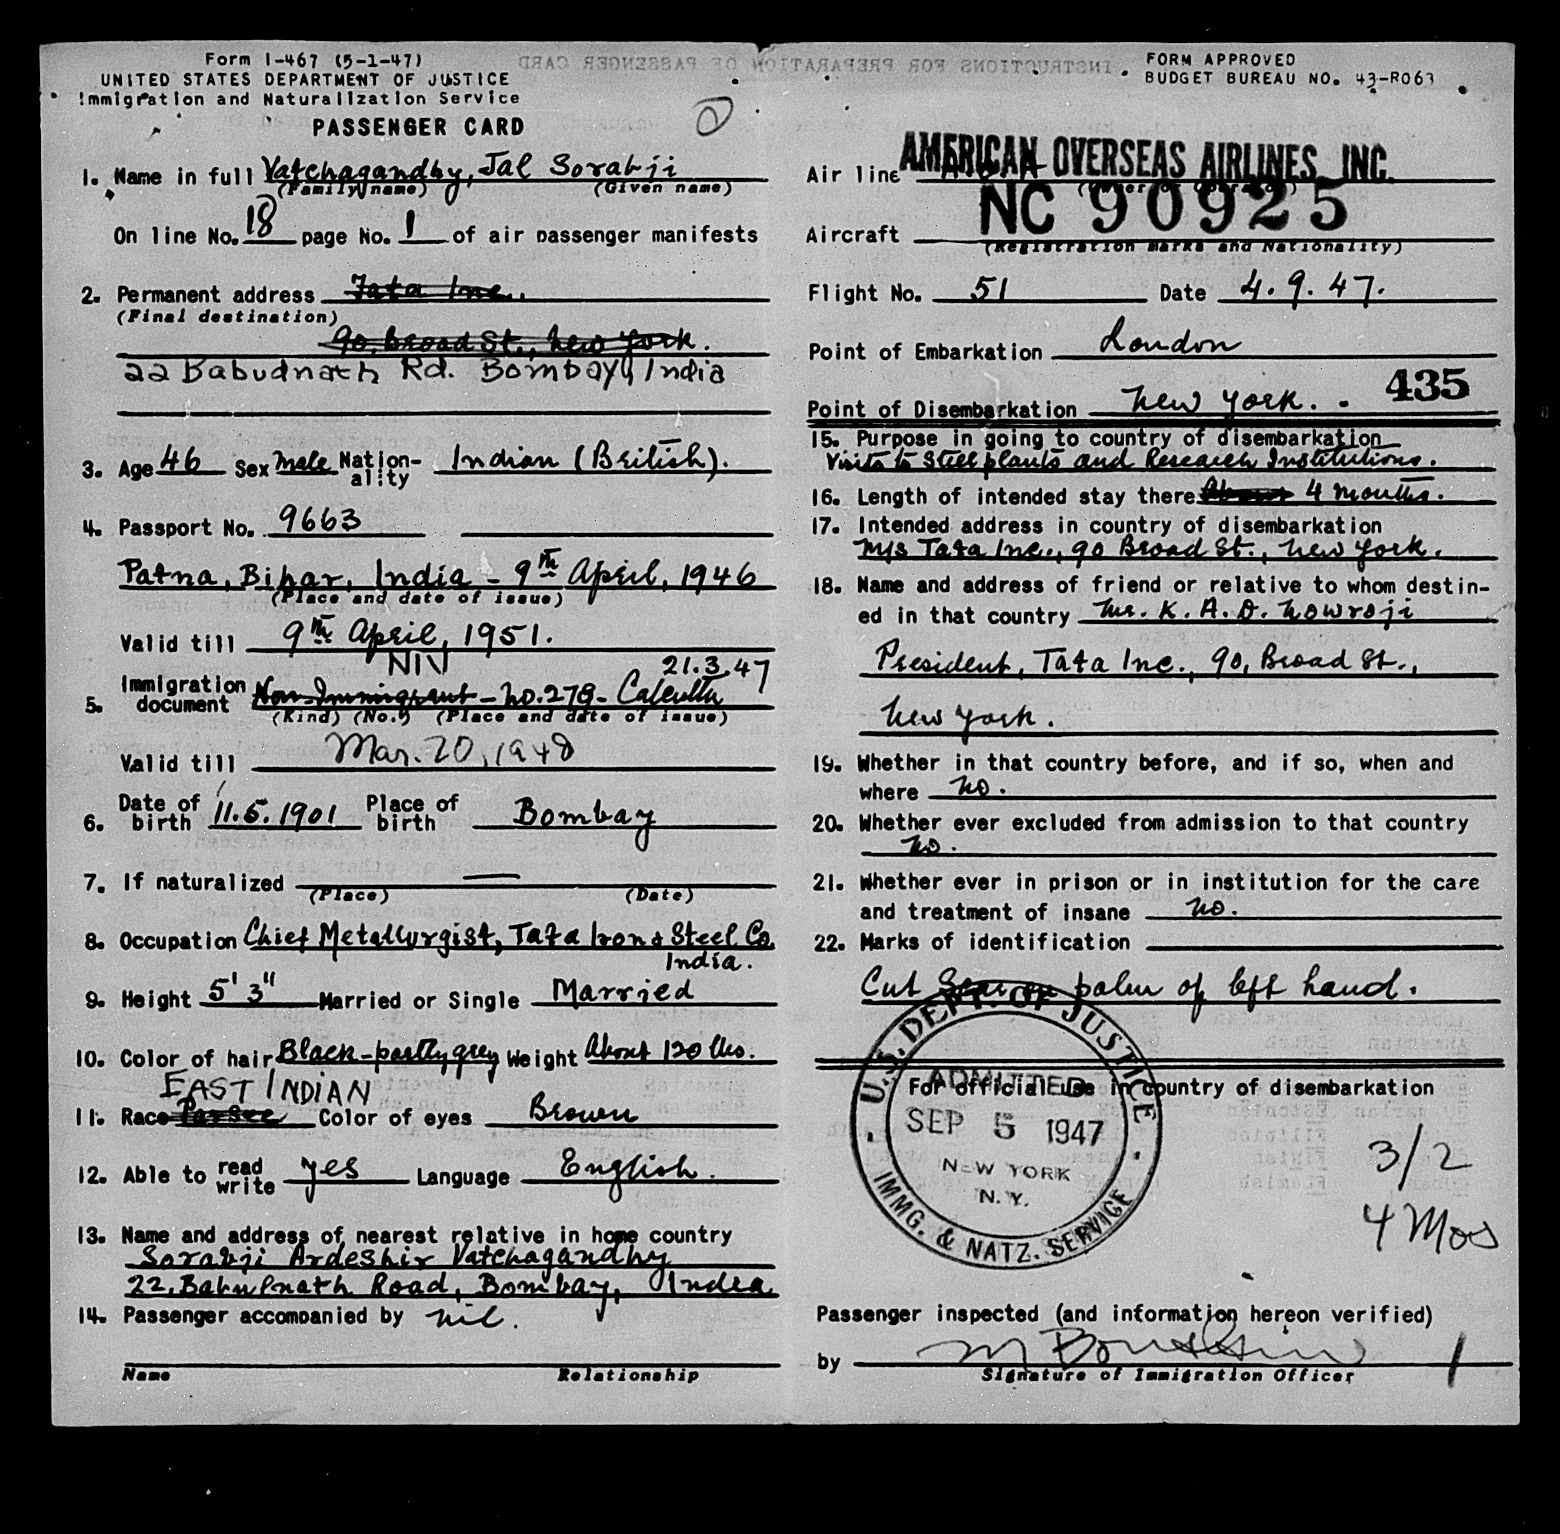 Form I-467 (5-1-47)
UNITED STATES DEPARTMENT OF JUSTICE
Immigration and Naturalization Service
PASSENGER CARD
1. Name in full Vatchagandhy, Jal Sorabji
(Family name) (Given name)
On line No. 18 page No. 1 of air passenger manifests
2. Permanent address Tata Inc.
(Final destination)
90, Broad St., New York.
22 Babudnath Rd. Bombay, India
3. Age 46 Sex Male Nation-ality Indian (British).
4. Passport No. 9663
Patna, Bihar, India - 9th April, 1946
(Place and date of issue)
Valid till 9th April, 1951.
NIV 21.3.47
5. Immigration document Non-Immigrant - No. 278 - Calcutta
(Kind) (No.) (Place and date of issue)
Valid till Mar. 20, 1948
6. Date of birth 11.5.1901 Place of birth Bombay
7. If naturalized —
(Place) (Date)
8. Occupation Chief Metallurgist, Tata Iron & Steel Co.
India.
9. Height 5' 3" Married or Single Married
10. Color of hair Black-partly grey Weight About 120 lbs.
EAST INDIAN
11. Race Parsee Color of eyes Brown
12. Able to read write yes Language English.
13. Name and address of nearest relative in home country
Sorabji Ardeshir Vatchagandhy
22, Babulnath Road, Bombay, India
14. Passenger accompanied by nil.
Name Relationship
INSTRUCTIONS FOR PREPARATION OF PASSENGER CARD
FORM APPROVED
BUDGET BUREAU NO. 43-R063
Air line AMERICAN OVERSEAS AIRLINES, INC.
(Owner or Operator)
Aircraft NC 90925
(Registration Marks and Nationality)
Flight No. 51 Date 4.9.47.
Point of Embarkation London
435
Point of Disembarkation New York.
15. Purpose in going to country of disembarkation
Visits to Steel plants and Research Institutions.
16. Length of intended stay there About 4 months.
17. Intended address in country of disembarkation
M/s Tata Inc., 90 Broad St., New York.
18. Name and address of friend or relative to whom destin-
ed in that country Mr. K. A. D. Nowroji
President, Tata Inc., 90, Broad St.,
New York.
19. Whether in that country before, and if so, when and
where No.
20. Whether ever excluded from admission to that country
No.
21. Whether ever in prison or in institution for the care
and treatment of insane No.
22. Marks of identification
Cut Scar on palm of left hand.
For official use in country of disembarkation
U.S. DEPT. OF JUSTICE
ADMITTED
SEP 5 1947
NEW YORK
N.Y.
IMMG. & NATZ. SERVICE
3/2
4 Mos
Passenger inspected (and information hereon verified)
by
Signature of Immigration Officer